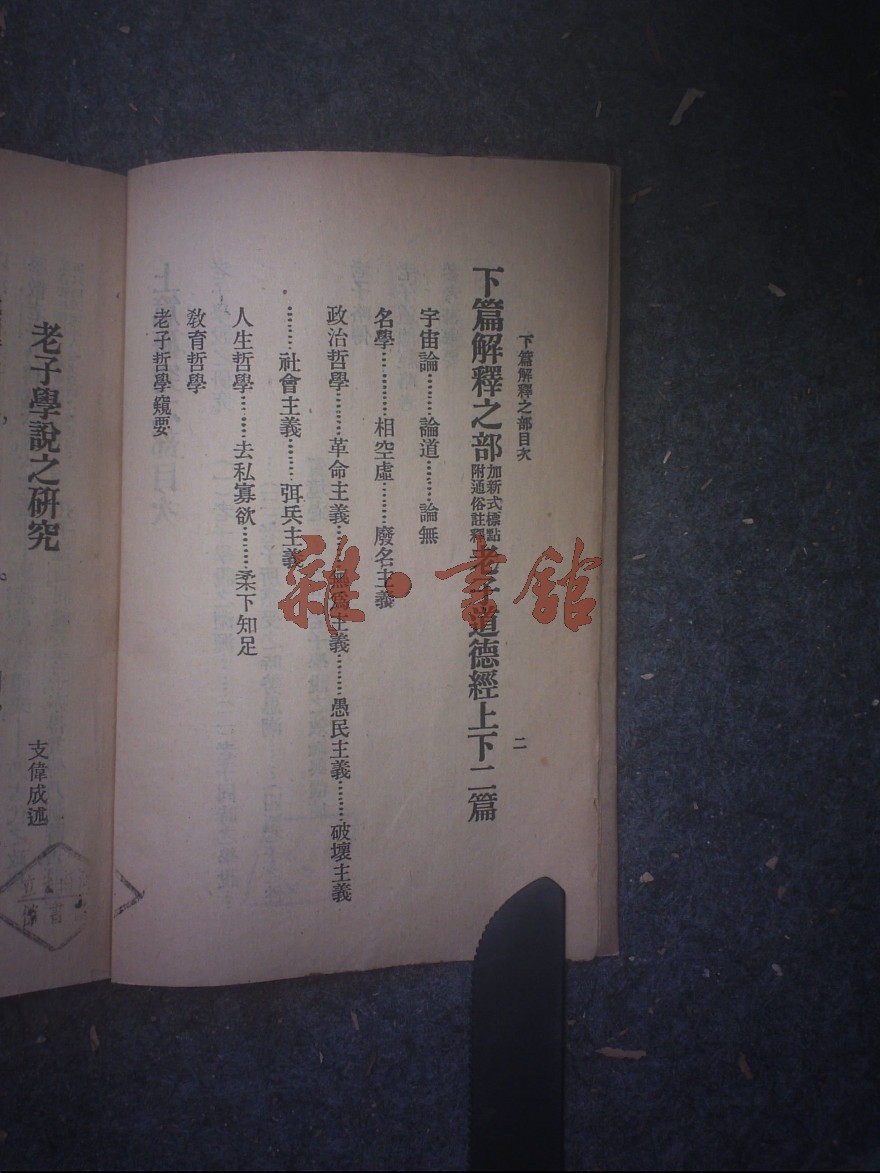 下篇解釋之部目次
二
下篇解釋之部加新式標點附通俗註釋老子道德經上下二篇
宇宙論………論道………論無
名學………相空虛………廢名主義
政治哲學………革命主義………無爲主義………愚民主義………破壞主義
………社會主義………弭兵主義
人生哲學………去私寡欲………柔下知足
教育哲學
老子哲學窺要
老子學說之研究
支偉成述
雜·書館